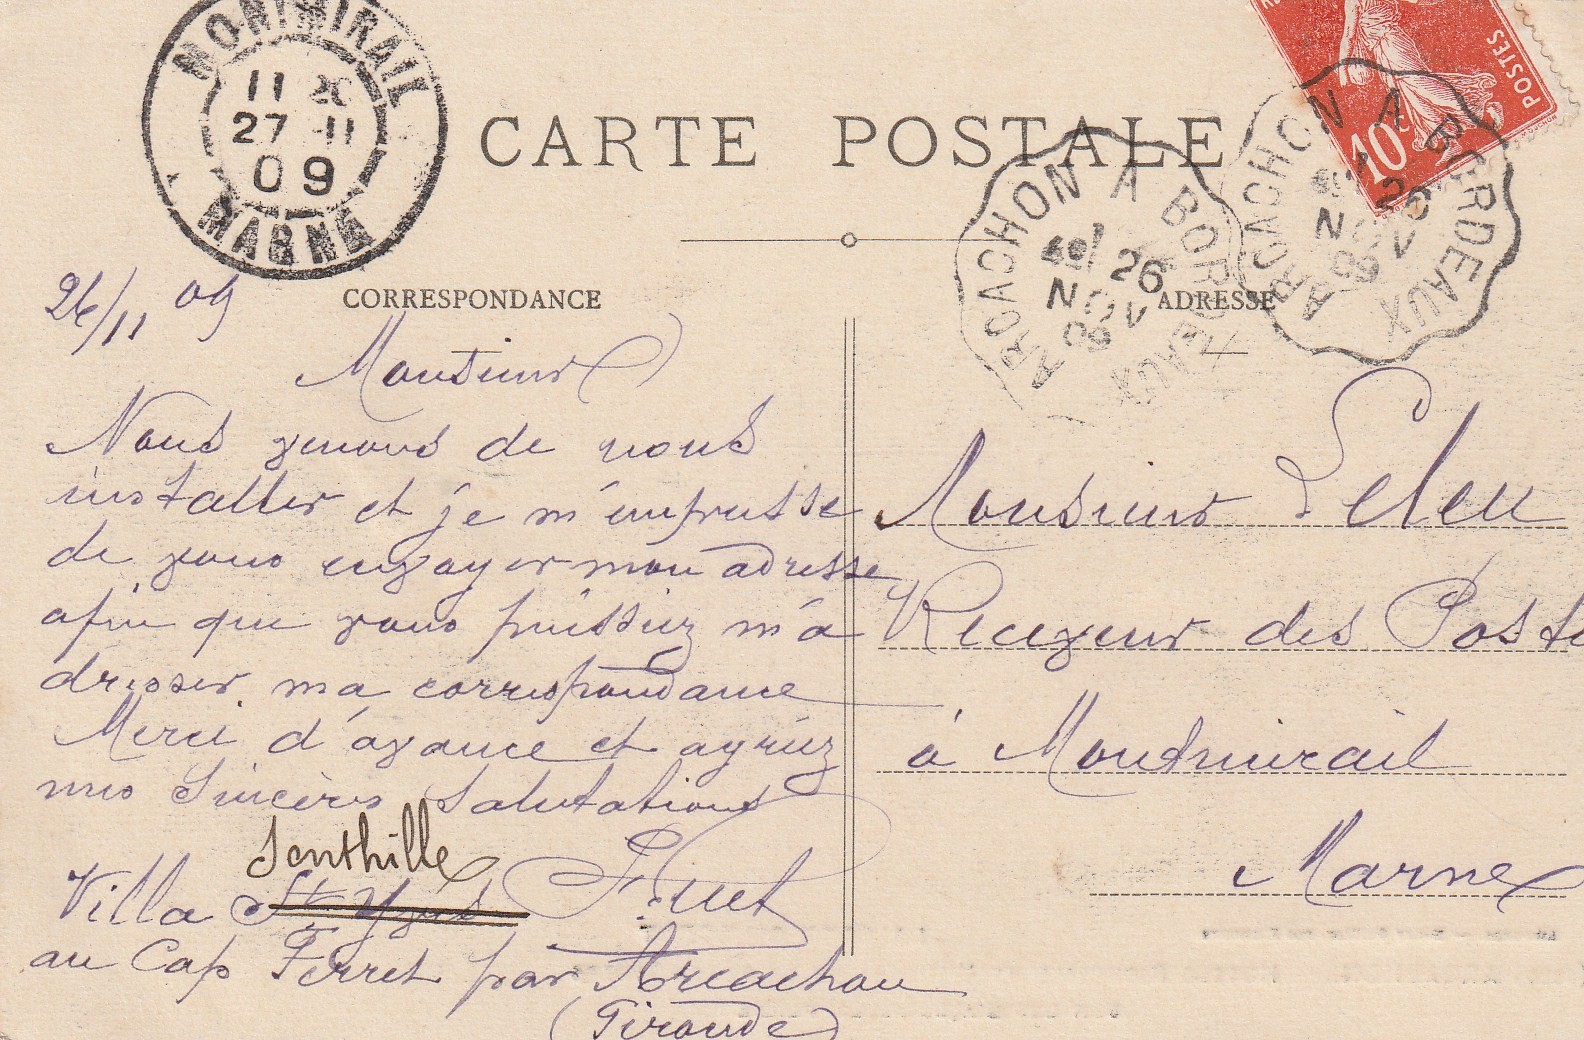 MONTMIRAIL
11 20
27 -11
09
MARNE
CARTE POSTALE
POSTES
10c
ARCACHON A BORDEAUX
26
NOV
09
ARCACHON A BORDEAUX
26
NOV
09
CORRESPONDANCE
ADRESSE
26/11 09
Monsieur
Nous venons de nous
installer et je m'empresse
de vous envoyer mon adresse
afin que vous puissiez m'a
dresser ma correspondance
Merci d'avance et agréez
mes sincères salutations
Villa St Yves
au Cap Ferret par Arcachon
(Gironde)
Monsieur Leleu
Receveur des Postes
à Montmirail
Marne